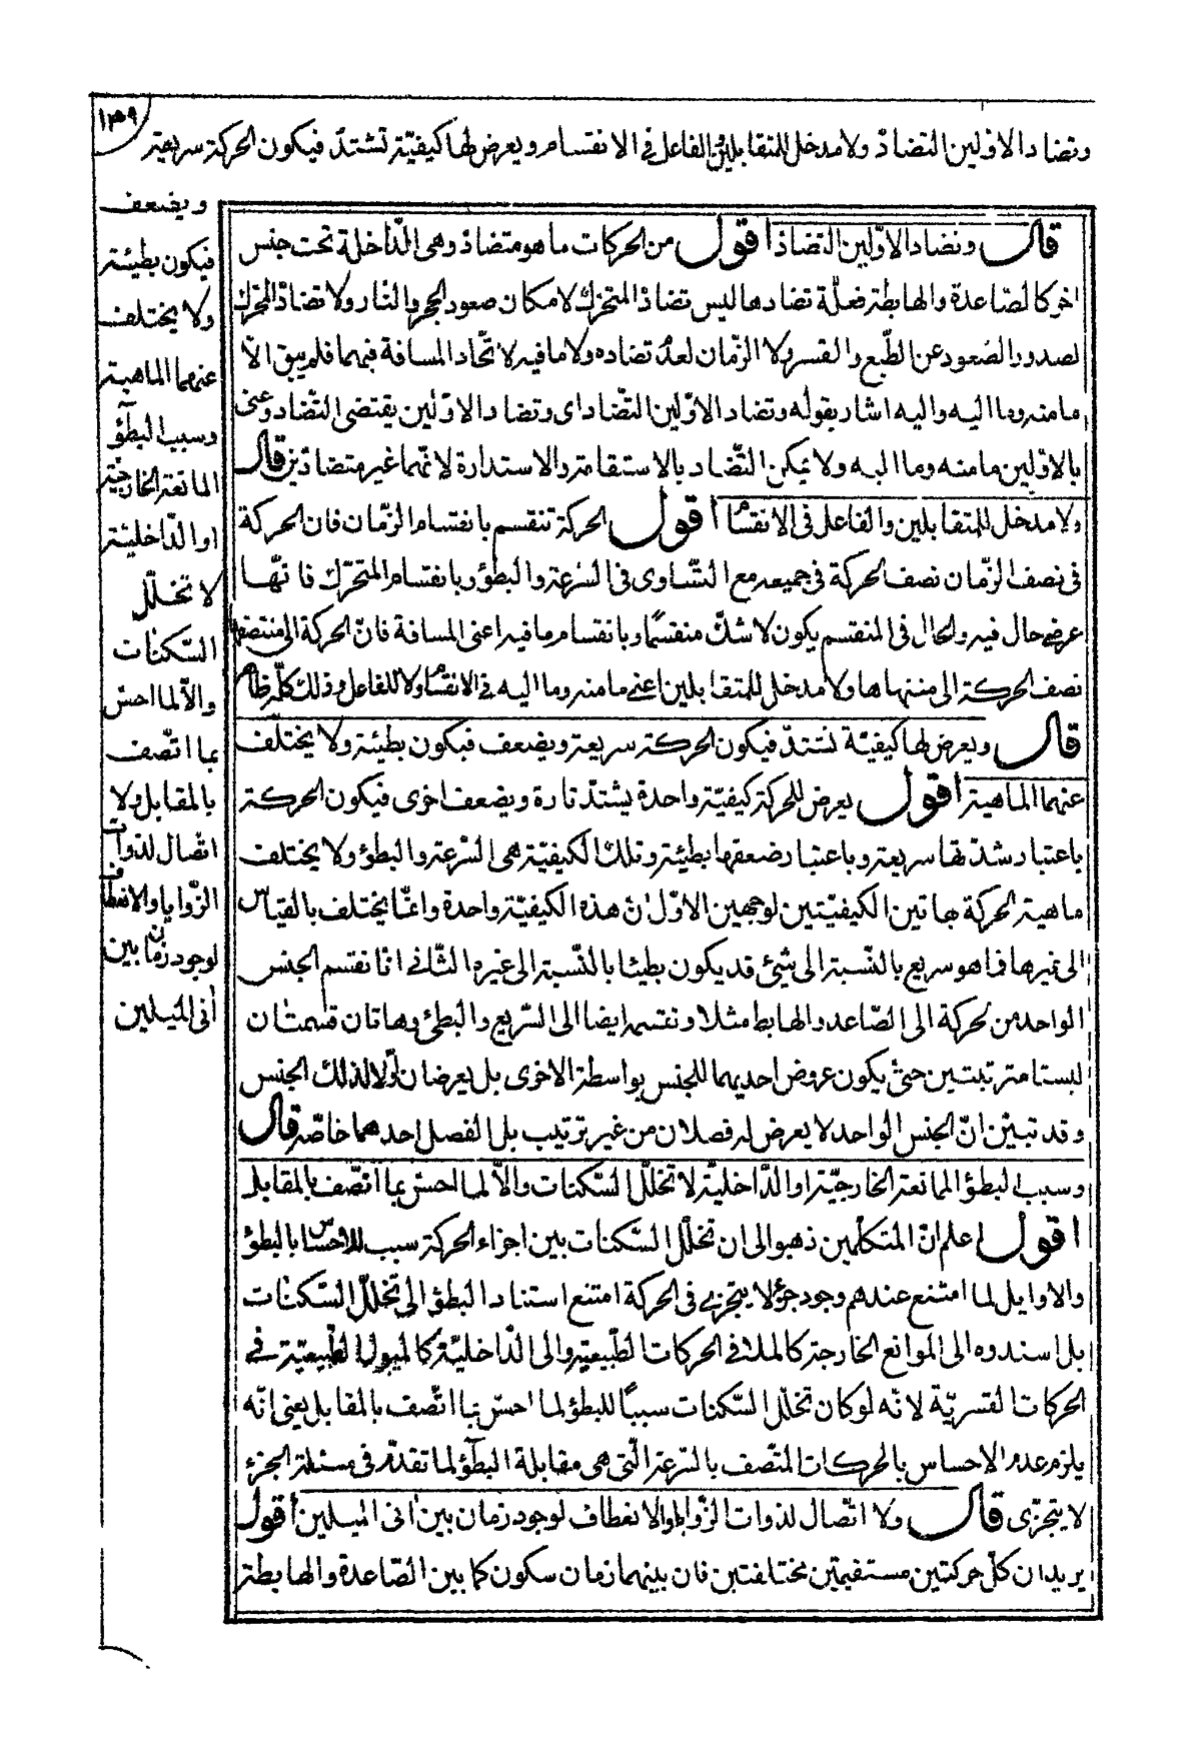 ١٣٩
وتضاد الاوّلين التضادّ ولا مدخل للمتقابلين والفاعل فى الانقسام ويعرض لها كيفيّة تشتدّ فيكون الحركة سريعة
ويضعف
فيكون بطيئة
ولا يختلف
عنهما الماهية
وسبب البطؤ
الممانعة الخارجيّة
او الدّاخليّة
لا تخلّل
السّكنات
والّا لما احسّ
بما اتّصف
بالمقابل ولا
اتّصال لذوات
الزّوايا والانعطاف
لوجود زمان بين
أنى الميلين
قال وتضاد الاوّلين التضادّ اقول من الحركات ما هو متضادّ وهى الدّاخلة تحت جنس
اخر كالصّاعدة والهابطة فعلّة تضادها ليس تضادّ المتحرّك لامكان صعود الحجر والنّار ولا تضادّ المحرّك
لصدور الصّعود عن الطّبع والقسر ولا الزّمان لعدم تضاده ولا ما فيه لاتّحاد المسافة فيهما فلم يبق الّا
ما منه وما اليه واليه اشار بقوله وتضاد الاوّلين التّضاد اى وتضاد الاوّلين يقتضى التّضاد وعنى
بالاوّلين ما منه وما اليه ولا يمكن التّضاد بالاستقامة والاستدارة لانّهما غير متضادّين قال
ولا مدخل للمتقابلين والفاعل فى الانقسام اقول الحركة تنقسم بانقسام الزّمان فان الحركة
فى نصف الزّمان نصف الحركة فى جميعه مع التّساوى فى السّرعة والبطؤ وبانقسام المتحرّك فانّها
عرض حال فيه والحال فى المنقسم يكون لا شكّ منقسمًا وبانقسام ما فيه اعنى المسافة فانّ الحركة الى منتصفها
نصف الحركة الى منتهاها ولا مدخل للمتقابلين اعنى ما منه وما اليه فى الانقسام ولا للفاعل وذلك كلّه ظاهر
قال ويعرض لها كيفيّة تشتدّ فيكون الحركة سريعة ويضعف فيكون بطيئة ولا يختلف
عنهما الماهية اقول يعرض للحركة كيفيّة واحدة يشتدّ تارة ويضعف اخرى فيكون الحركة
باعتبار شدّتها سريعة وباعتبار ضعفها بطيئة وتلك الكيفيّة هى السّرعة والبطؤ ولا يختلف
ماهية الحركة بهاتين الكيفيّتين لوجهين الاوّل انّ هذه الكيفيّة واحدة وانّما يختلف بالقياس
الى غيرها فما هو سريع بالنّسبة الى شئ قد يكون بطيئا بالنّسبة الى غيره الثّانى انّا نقسم الجنس
الواحد من الحركة الى الصّاعد والهابط مثلا ونقسمه ايضا الى السّريع والبطئ وهاتان قسمتان
ليستا مترتبتين حتّى يكون عروض احديهما للجنس بواسطة الاخرى بل يعرضان اوّلا لذلك الجنس
وقد تبيّن انّ الجنس الواحد لا يعرض له فصلان من غير ترتيب بل الفصل احدهما خاصّة قال
وسبب البطؤ الممانعة الخارجيّة او الدّاخليّة لا تخلّل السّكنات والّا لما احسّ بما اتّصف بالمقابل
اقول اعلم انّ المتكلّمين ذهبوا الى ان تخلّل السّكنات بين اجزاء الحركة سبب للاحساس بالبطؤ
والاوايل لما امتنع عندهم وجود جزؤ لا يتجزى فى الحركة امتنع استناد البطؤ الى تخلّل السّكنات
بل اسندوه الى الموانع الخارجة كالملا فى الحركات الطّبيعيّة والى الدّاخليّة كالميول الطّبيعيّة فى
الحركات القسريّة لانّه لو كان تخلّل السّكنات سببًا للبطؤ لما احسّ بما اتّصف بالمقابل يعنى انّه
يلزم عدم الاحساس بالحركات المتّصف بالسّرعة الّتى هى مقابلة البطؤ لما تقدّم فى مسئلة الجزء
لا يتجزّى قال ولا اتّصال لذوات الزّوايا والانعطاف لوجود زمان بين أنى الميلين اقول
يريد ان كلّ حركتين مستقيمتين مختلفتين فان بينهما زمان سكون كما بين الصّاعدة والهابطة